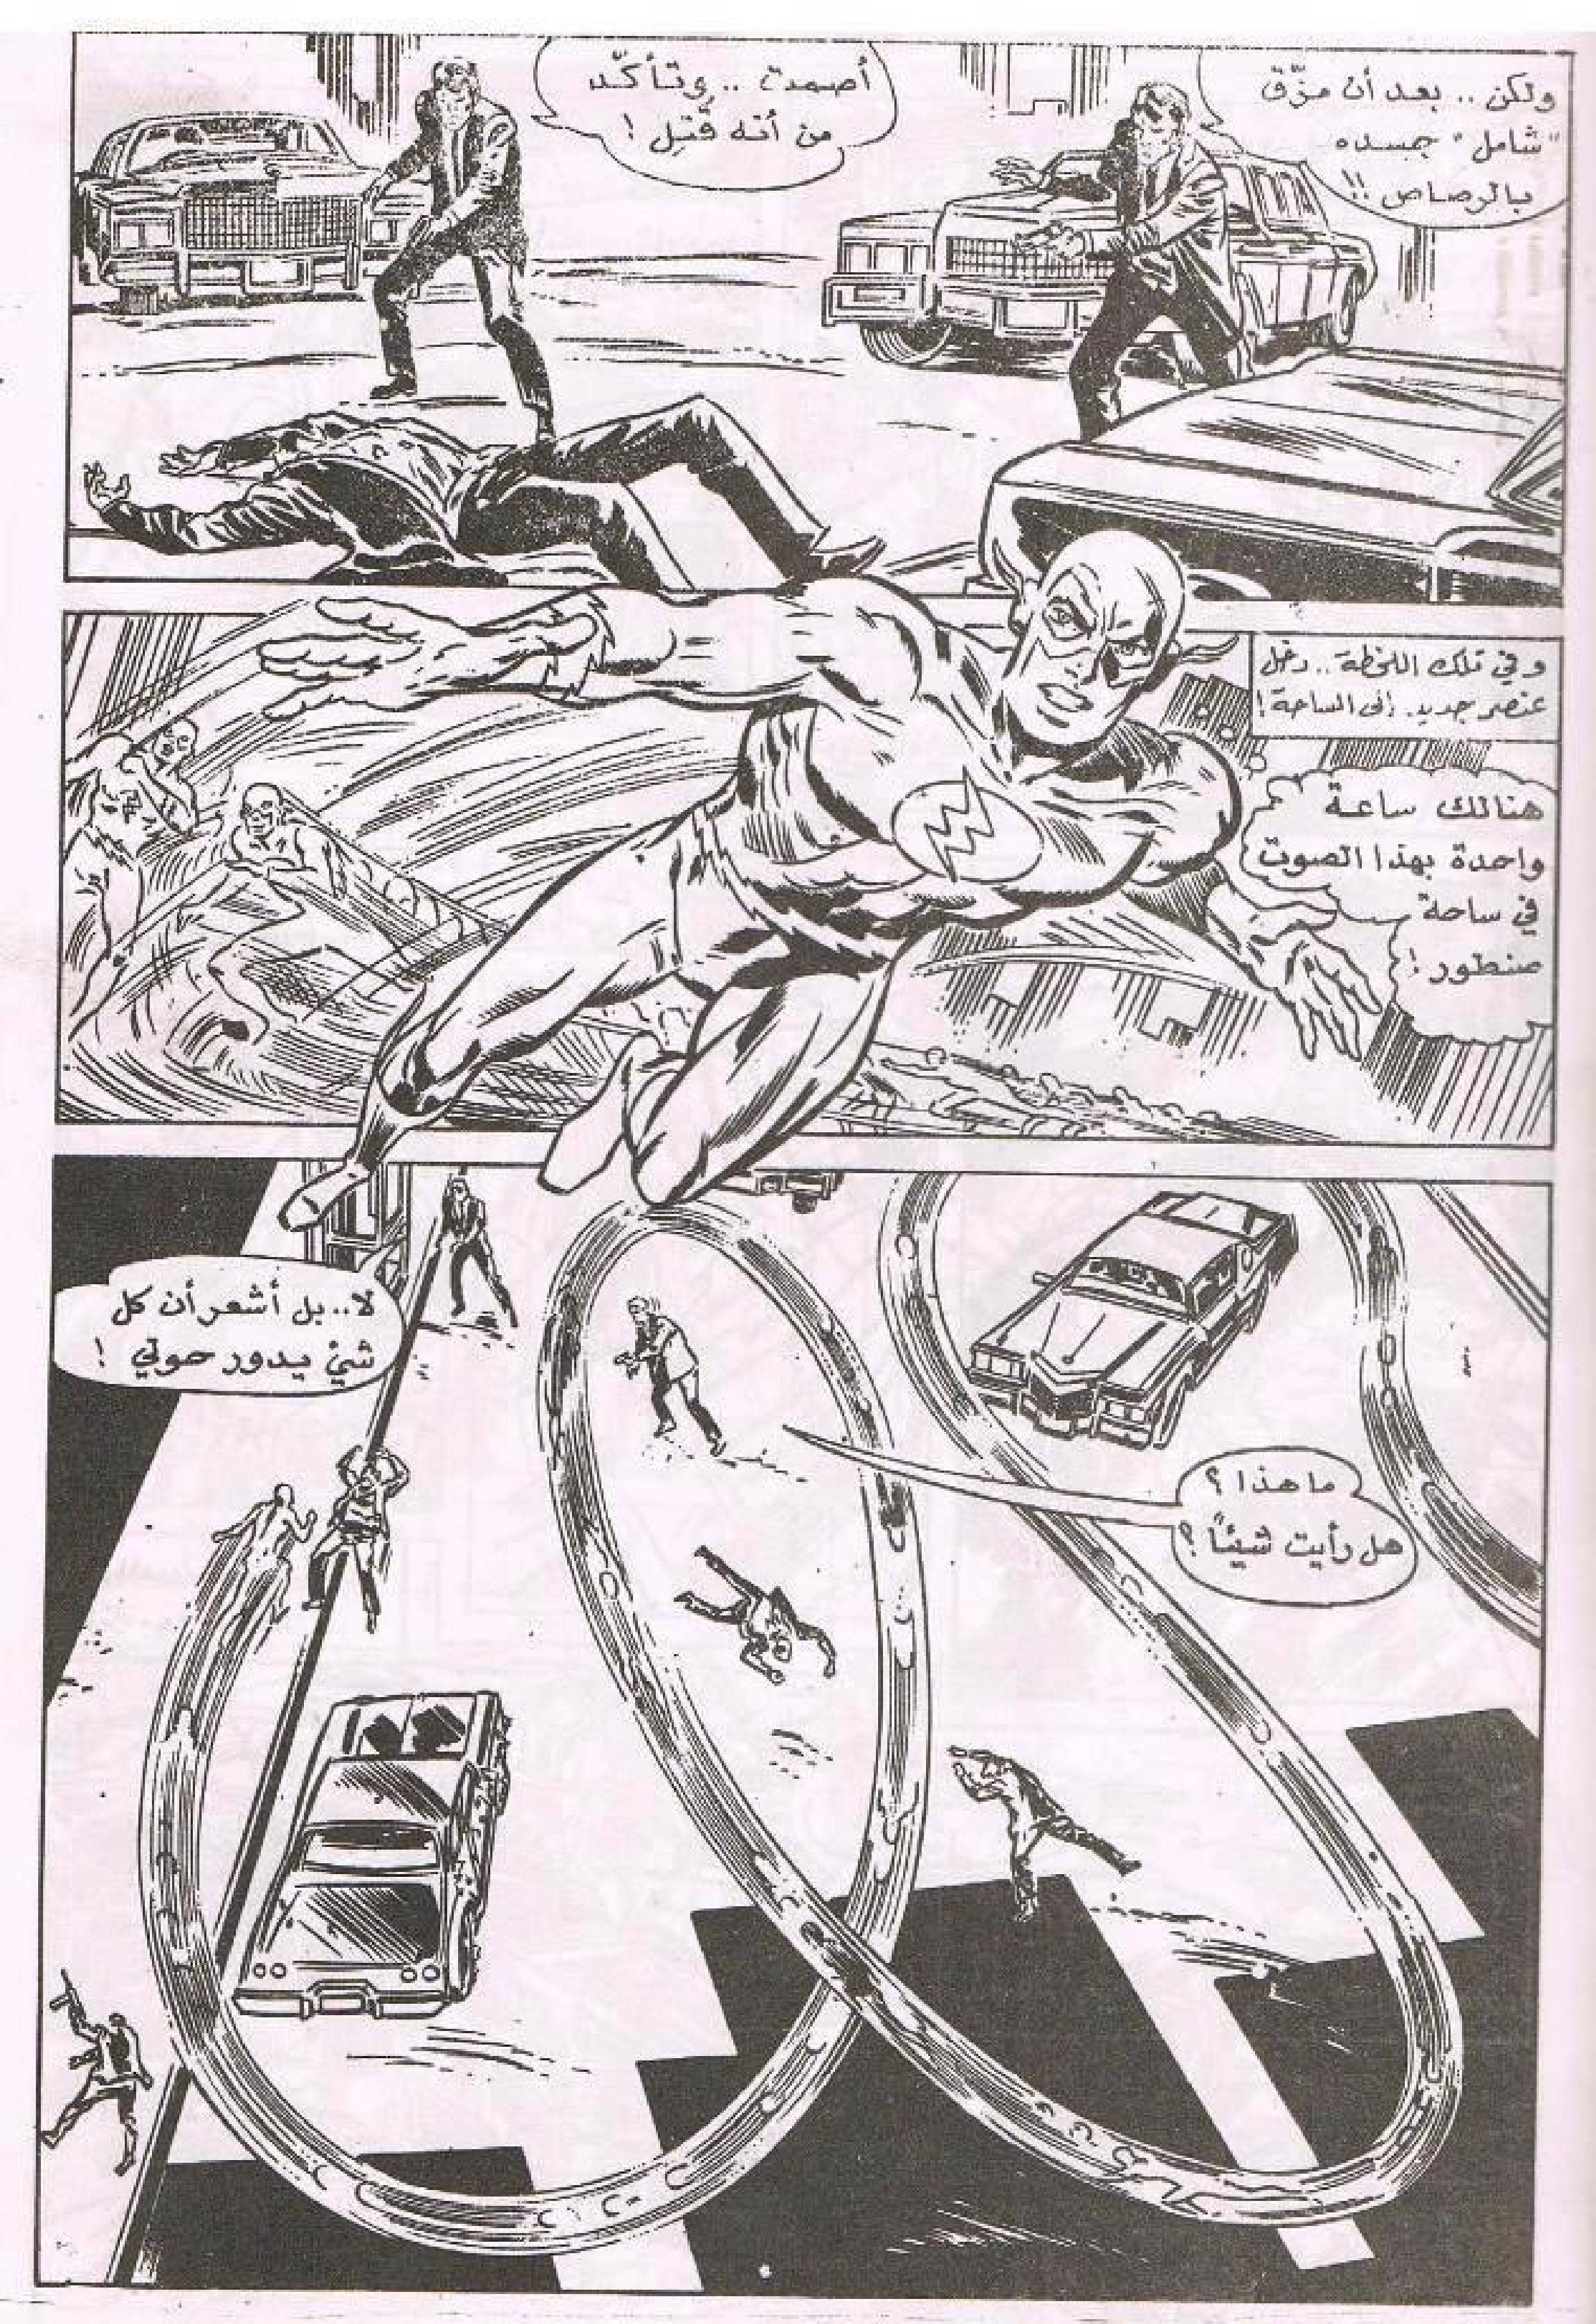 ولكن .. بعد أن مزّق
"شامل" جسده
بالرصاص !!
أصمت .. وتأكّد
من أنه قُتِل !
وفي تلك اللحظة .. دخل
عنصر جديد. إلى الساحة !
هنالك ساعة
واحدة بهذا الصوت
في ساحة
صنطور !
ما هذا ؟
هل رأيت شيئاً ؟
لا.. بل أشعر أن كل
شئ يدور حولي !